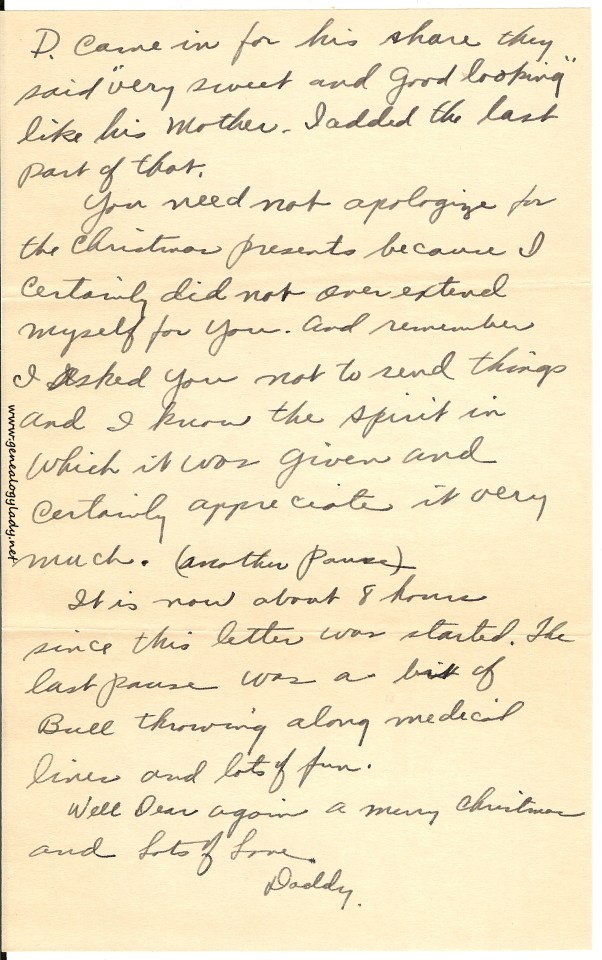 D. came in for his share they
said "very sweet and good looking"
like his Mother. I added the last
part of that.
You need not apologize for
the Christmas presents because I
certainly did not over extend
myself for you. And remember
I asked you not to send things
and I know the spirit in
which it was given and
certainly appreciate it very
much. (another pause)
It is now about 8 hours
since this letter was started. The
last pause was a bit of
Bull throwing along medical
lines and lots of fun.
Well Dear again a merry Christmas
and Lots of Love
Daddy.
www.genealogylady.net